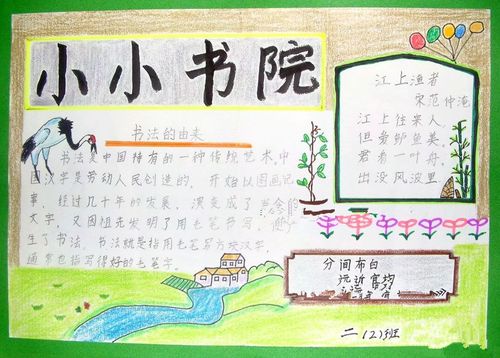 小小书院
书法的由来
书法是中国特有的一种传统艺术,中
国汉字是劳动人民创造的,开始以图画记
事,经过几十年的发展,演变成了当今的
文字,又因祖先发明了用毛笔书写,
生了书法。书法就是指用毛笔写方块汉字
通常也指写得好的毛笔字。
江上渔者
宋范仲淹
江上往来人,
但爱鲈鱼美,
君看一叶舟,
出没风波里
分间布白
远近 均
二(2)班